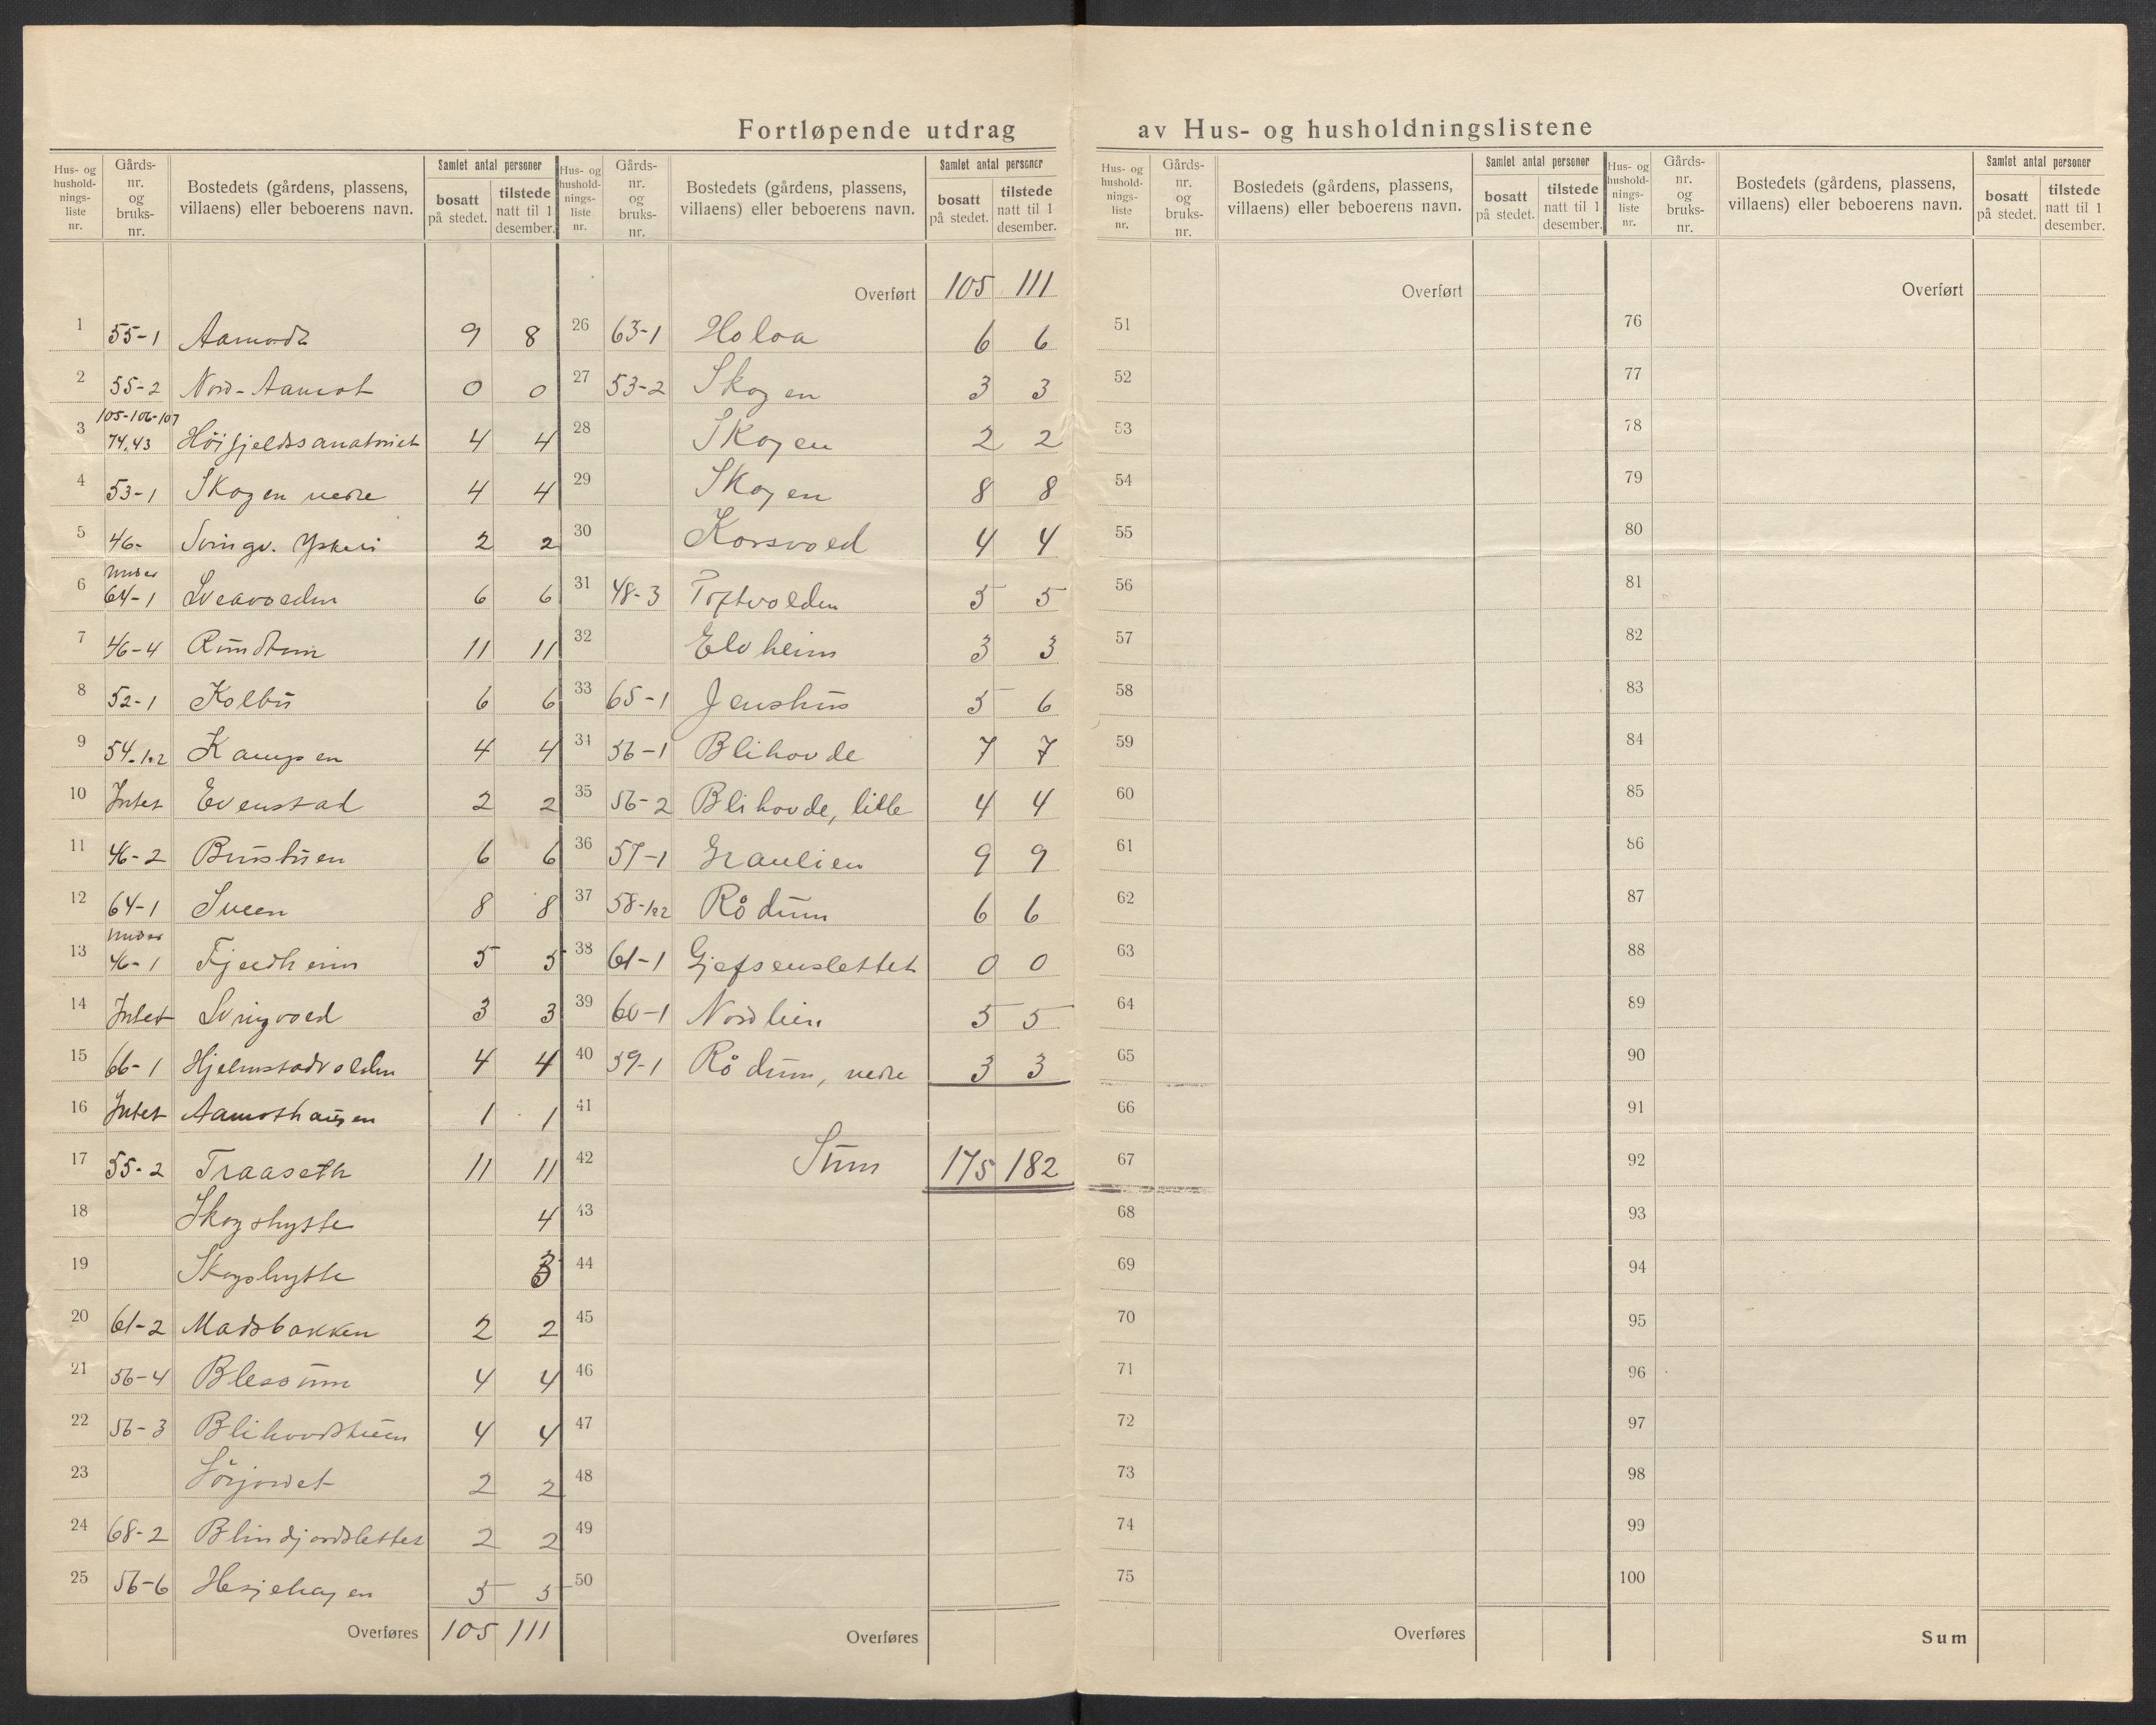 Fortløpende utdrag av Hus- og husholdningslistene
Hus- og hushold-nings-liste nr. Gårds-nr. og bruks-nr. Bostedets (gårdens, plassens, villaens) eller beboerens navn. Samlet antal personer bosatt på stedet. tilstede natt til 1 desember.
Hus- og hushold-nings-liste nr. Gårds-nr. og bruks-nr. Bostedets (gårdens, plassens, villaens) eller beboerens navn. Samlet antal personer bosatt på stedet. tilstede natt til 1 desember.
1 55-1 Aamodt 9 8
2 55-2 Nord-Aamot 0 0
105-106-107
3 74,43 Höifjeldssanatoriet 4 4
4 53-1 Skogen nedre 4 4
5 46- Svingv. Yskeri 2 2
Under
6 64-1 Sveavolden 6 6
7 46-4 Rundtom 11 11
8 52-1 Kolbu 6 6
9 54-1.2 Kampen 4 4
10 Intet Evenstad 2 2
11 46-2 Bustuen 6 6
12 64-1 Sveen 8 8
Under
13 46-1 Fjeldheim 5 5
14 Intet Svingvold 3 3
15 66-1 Hjelmstadvolden 4 4
16 Intet Aamothaugen 1 1
17 55-2 Traaseth 11 11
18 Skogshytte 4
19 Skogshytte 3
20 61-2 Madsbakken 2 2
21 56-4 Blesöum 4 4
22 56-3 Blihovdstuen 4 4
23 Sörjordet 2 2
24 68-2 Blindjordslettet 2 2
25 56-6 Hesjehagen 5 5
Overføres 105 111
Overført 105 111
26 63-1 Holoa 6 6
27 53-2 Skogen 3 3
28 Skogen 2 2
29 Skogen 8 8
30 Korsvold 4 4
31 48-3 Toftvolden 5 5
32 Elvheim 3 3
33 65-1 Jenshus 5 6
34 56-1 Blihovde 7 7
35 56-2 Blihovde, litle 4 4
36 57-1 Graulien 9 9
37 58-1.2 Rådum 6 6
38 61-1 Gjefsenslettet 0 0
39 60-1 Nordlien 5 5
40 59-1 Rådum, nedre 3 3
41
42 Sum 175 182
43
44
45
46
47
48
49
50
Overføres
Hus- og hushold-nings-liste nr. Gårds-nr. og bruks-nr. Bostedets (gårdens, plassens, villaens) eller beboerens navn. Samlet antal personer bosatt på stedet. tilstede natt til 1 desember.
Overført
51
52
53
54
55
56
57
58
59
60
61
62
63
64
65
66
67
68
69
70
71
72
73
74
75
Overføres
Hus- og hushold-nings-liste nr. Gårds-nr. og bruks-nr. Bostedets (gårdens, plassens, villaens) eller beboerens navn. Samlet antal personer bosatt på stedet. tilstede natt til 1 desember.
Overført
76
77
78
79
80
81
82
83
84
85
86
87
88
89
90
91
92
93
94
95
96
97
98
99
100
Sum